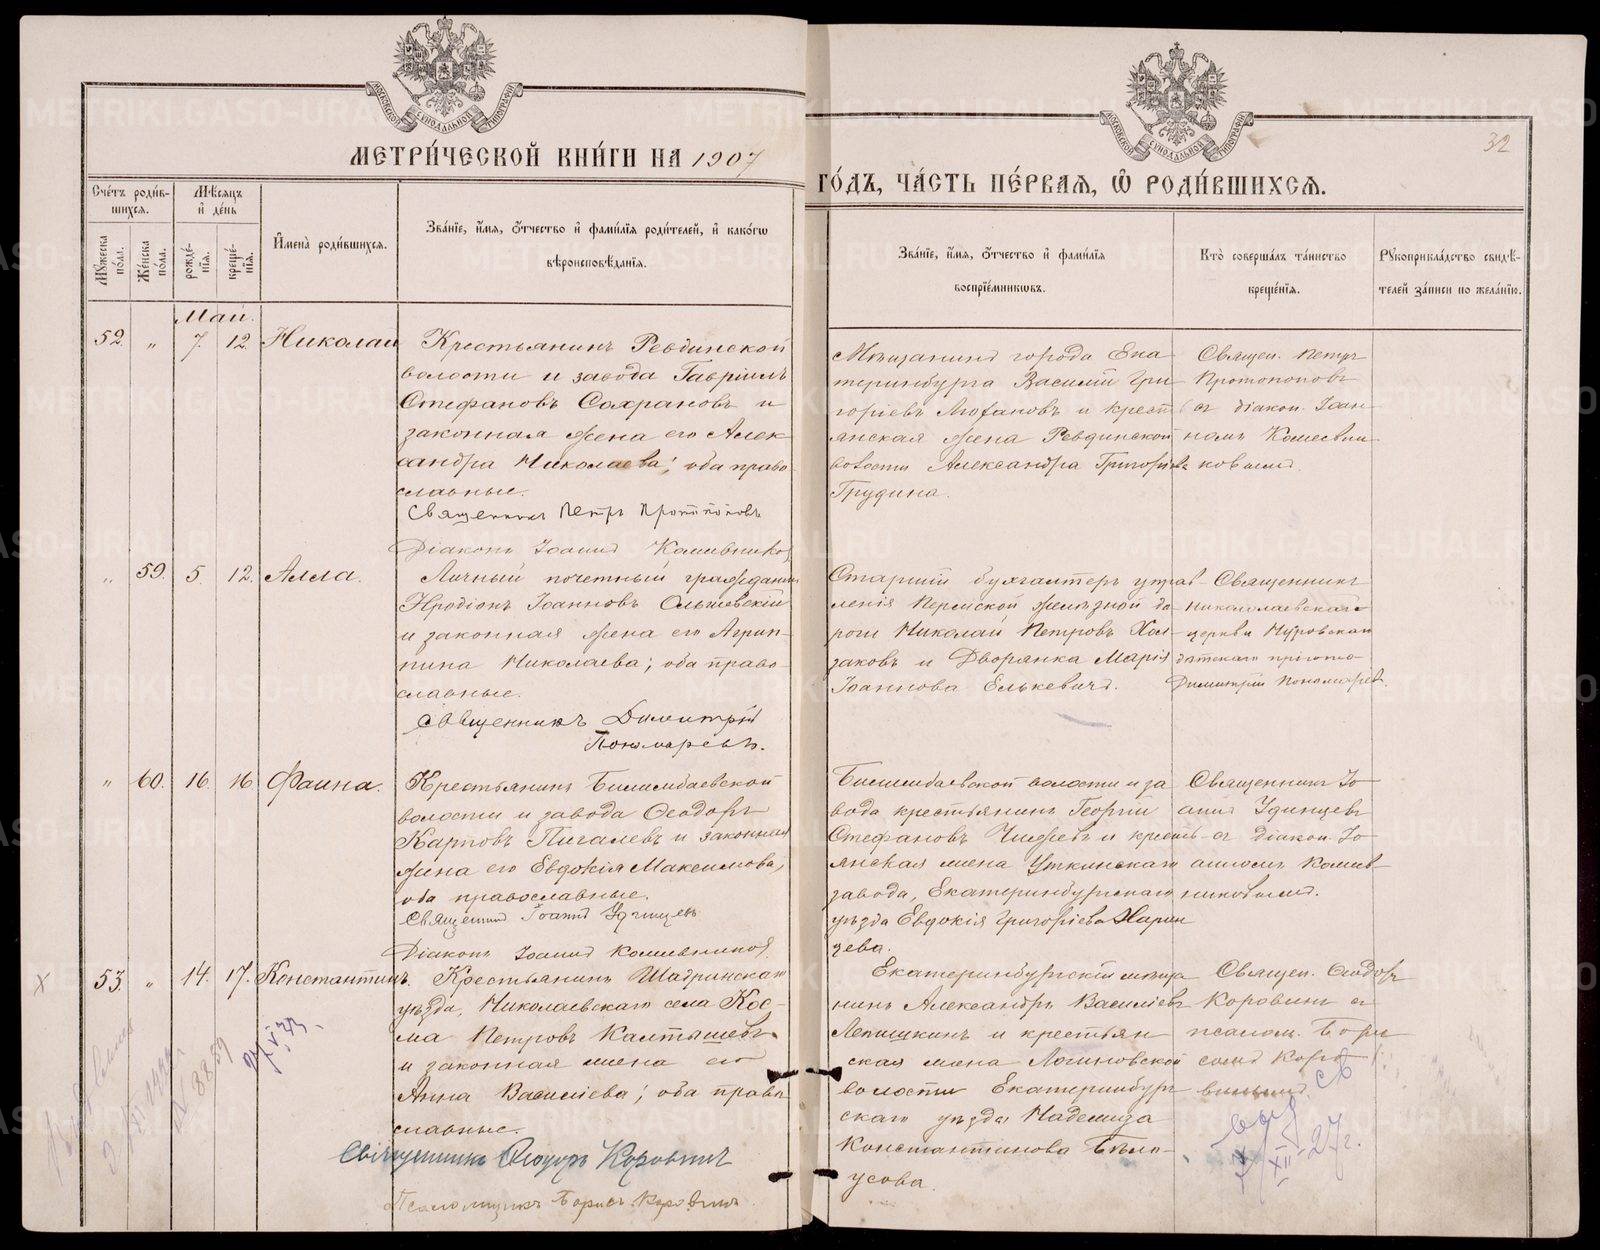 МЕТРИ́ЧЕСКОЙ КНИ́ГИ НА 1907
ГО́ДЪ, ЧА́СТЬ ПЕ́РВАЯ, Ѡ҆ РОДИ́ВШИХСЯ.
32
Сче́тъ роди́в-
шихся.
Мѣсяцъ
и҆ де́нь
И҆мена̀ роди́вшихся.
Зва́нїе, и҆́мя, ѻ҆́тчество и҆ фами́лїя роди́телей, и҆ како́гѡ
вѣроисповѣ́данїя.
Мꙋ́жеска
по́ла.
Же́нска
по́ла.
рожде́-
нїя.
креще́-
нїя.
Зва́нїе, и҆́мя, ѻ҆́тчество и҆ фами́лїя
воспрїе́мникѡвъ.
Кто̀ соверша́лъ та́инство
креще́нїя.
Рꙋкоприкла́дство свидѣ́-
телей за́писи по жела́нїю.
Май.
52. „ 7. 12. Николай
Крестьянинъ Ревдинской
волости и завода Гавріилъ
Стефановъ Сахрановъ и
законная жена его Алек-
сандра Николаева; оба право-
славные.
Священникъ Петръ Протопоповъ
Діаконъ Іоаннъ
Мѣщанинъ города Ека-
теринбурга Василій Гри-
горіевъ и крест
янская жена Ревдинской
волости Александра Григорьева
Грудина.
Священ. Петръ
Протопоповъ
съ діакон. Іоан-
номъ
„ 59. 5. 12. Алла.
Личный почетный гражданинъ
Иродіонъ Іоанновъ Ольшевскій
и законная жена его Агрип-
пина Николаева; оба право-
славные.
Священникъ Димитрій
Пономаревъ.
Старшій бухгалтеръ управ
ленія Пермской желѣзной до
роги Николай Петровъ Хол-
заковъ и Дворянка Марія
Іоаннова Елькевичъ.
Священникъ
Николаевской
церкви Нуровскаго
дѣтскаго пріюта
Димитрій Пономаревъ.
„ 60. 16. 16 Фаина.
Крестьянинъ Билимбаевской
волости и завода Ѳеодоръ
Карповъ Пигалевъ и законная
жена его Евдокія Максимова,
оба православные.
Священникъ Іоаннъ Удинцевъ
Діаконъ Іоаннъ
Билимбаевской волости и за
вода крестьянинъ Георгій
Стефановъ и кресть-
янская жена Уткинскаго
завода, Екатеринбургскаго
уѣзда Евдокія Григорьева
Священникъ Іо-
аннъ Удинцевъ
съ діакон. Іо-
анномъ
X 53. „ 14. 17. Константинъ.
Крестьянинъ Шадринскаго
уѣзда, Николаевскаго села Кос-
ма Петровъ Калташевъ
и законная жена его
Анна Василіева; оба право-
славные.
Священникъ Ѳеодоръ Коровинъ
Псаломщикъ Борисъ Коровинъ.
Екатеринбургскій мѣща
нинъ Александръ Василіевъ
Лепишкинъ и крестьян
ская жена Логиновской
волости Екатеринбург
скаго уѣзда Надежда
Константинова Бѣло-
усова.
Священ. Ѳеодоръ
Коровинъ съ
псалом. Бори
сомъ Коро
винымъ
№ 8859
XII 27 г.
METRIKI.GASO-URAL.RU